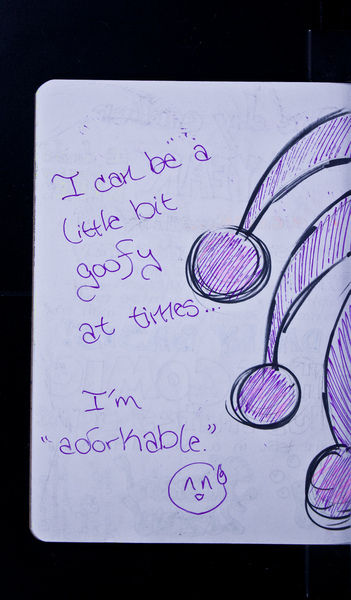 I can be a
little bit
goofy
at times...
I'm
"adorkable."